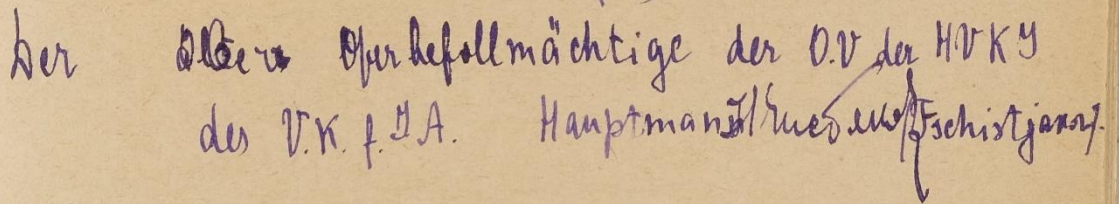 Der Ober Operbefollmächtige der O.V der HVKJ
des V.K. f. J A. Hauptmann /Tschistjakov/.